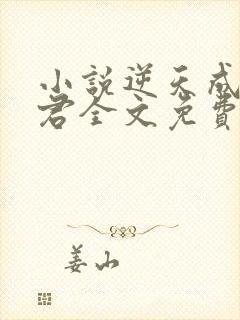 小說逆天成
君全文免費
姜山